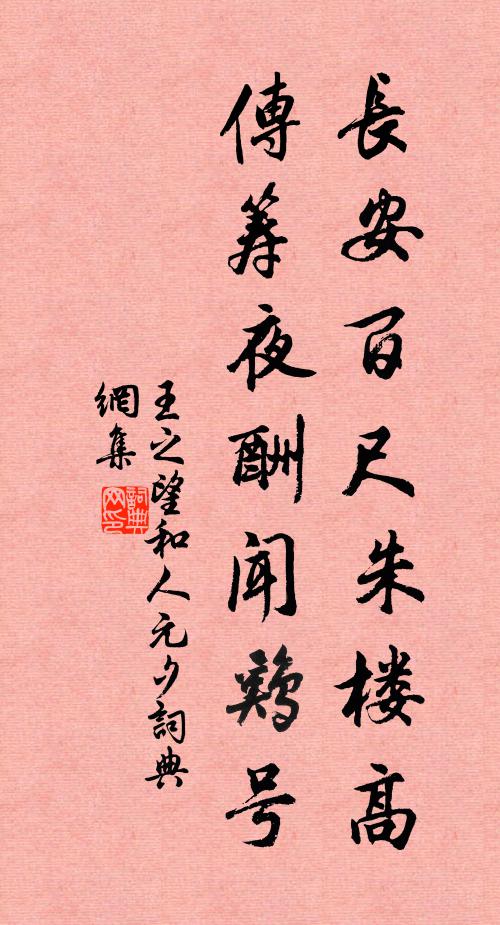 長安百尺朱楼高
傳筹夜酬闻鷄号
王之望和人元夕詞典
網集
詞典网印